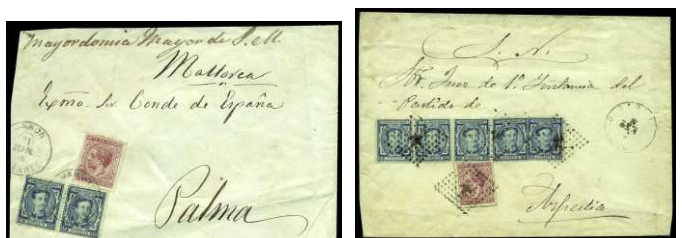 Mayordomia Mayor de S. M.
Mallorca
Exmo. Sr Conde de España
Palma
S. N.
Sr. Juez de 1ª Instancia del
Partido de
Azpeitia